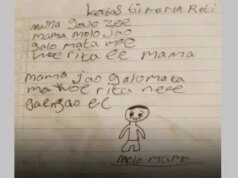 kertas li mama Roti
mama galo zee
mama molo Jao
galo mata moe
woe rika ee mama
mama Jao galo mata
ma woe rika nere
gae gao ee
molo mama